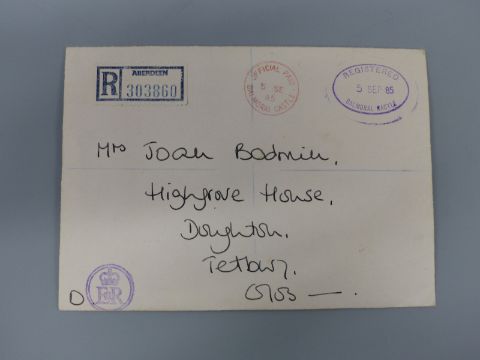 R ABERDEEN
303860
OFFICIAL PAID
5 SE
85
BALMORAL CASTLE
REGISTERED
5 SEP 85
BALMORAL CASTLE
Mrs Joan Bodmin,
Highgrove House,
Doughton,
Tetbury,
Glos —.
D
EIIR